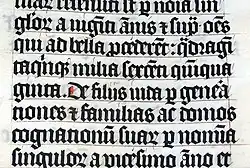 suaꝝ recensiti sūt ꝑ noīa sin
guloꝝ a uiginti ānis ⁊ sup̄ oēs
qui ad bella ꝓcederēt: q̄dragī
ta quīqꝫ milia sexcēti quīqua
ginta. De filiis iuda ꝑ genera
tiones ⁊ familias ac domos
cognationū suaꝝ ꝑ nomīa
singuloꝝ a vicesimo āno et